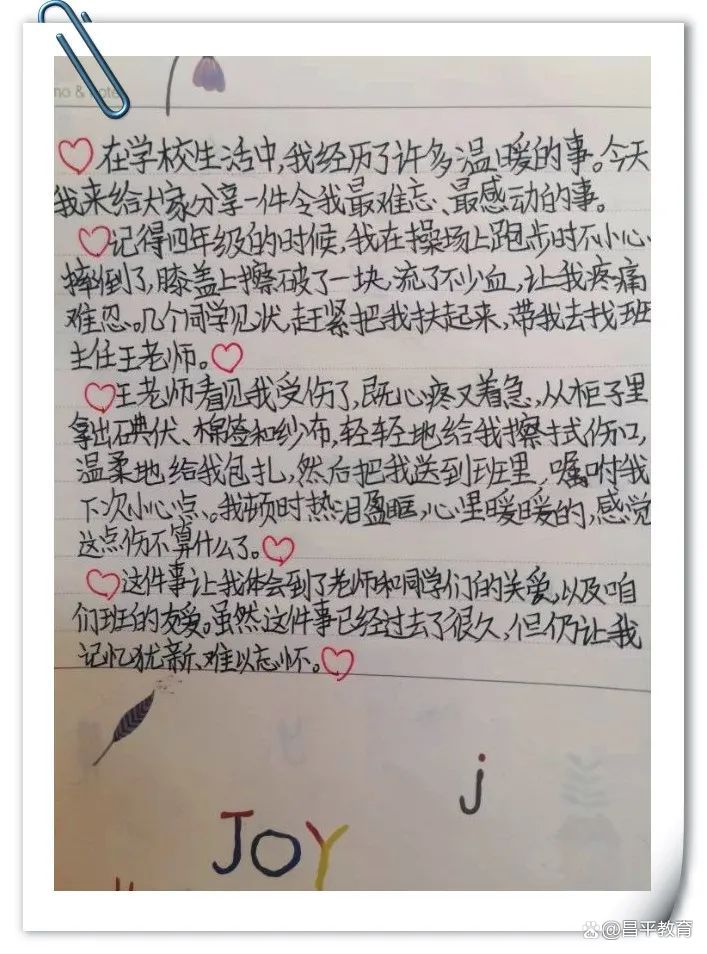 no & note
在学校生活中,我经历了许多温暖的事。今天
我来给大家分享一件令我最难忘、最感动的事。
记得四年级的时候,我在操场上跑步时不小心
摔倒了,膝盖上擦破了一块,流了不少血,让我疼痛
难忍。几个同学见状,赶紧把我扶起来,带我去找班
主任王老师。
王老师看见我受伤了,既心疼又着急,从柜子里
拿出碘伏、棉签和纱布,轻轻地给我擦拭伤口,
温柔地给我包扎,然后把我送到班里,嘱咐我
下次小心点、。我顿时热泪盈眶,心里暖暖的,感觉
这点伤不算什么了。
这件事让我体会到了老师和同学们的关爱,以及咱
们班的友爱。虽然这件事已经过去了很久,但仍让我
记忆犹新、难以忘怀。
j
JOY
@昌平教育